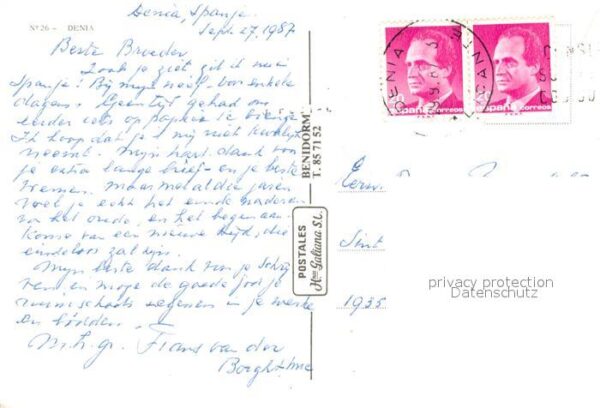 Nº 26 - DENIA
Denia, Spanje.
Sept. 27, 1987
Beste Broeder
Zoals je ziet zit ik in
Spanje! Bij mijn neef voor enkele
dagen. Geen tijd gehad om
eerder iets op papier te
Ik hoop dat je 't mij niet kwalijk
neemt. Mijn hart. dank voor
je extra lange brief en je beste
wensen. Maar met al die jaren
voel je echt het einde naderen
van het oude, en het begin aan-
komen van een nieuwe tijd, die
eindeloos zal zijn.
Mijn beste dank voor je schrij
ven en moge de goede God je
ruimschoots zegenen in je werk
en bidden.
m.h.gr. Frans van der
Borght
BENIDORM
T. 85 71 52
POSTALES
Hnos Galiana S.L.
DENIA
España correos
España correos
Eerw.
Sint
1935
privacy protection
Datenschutz